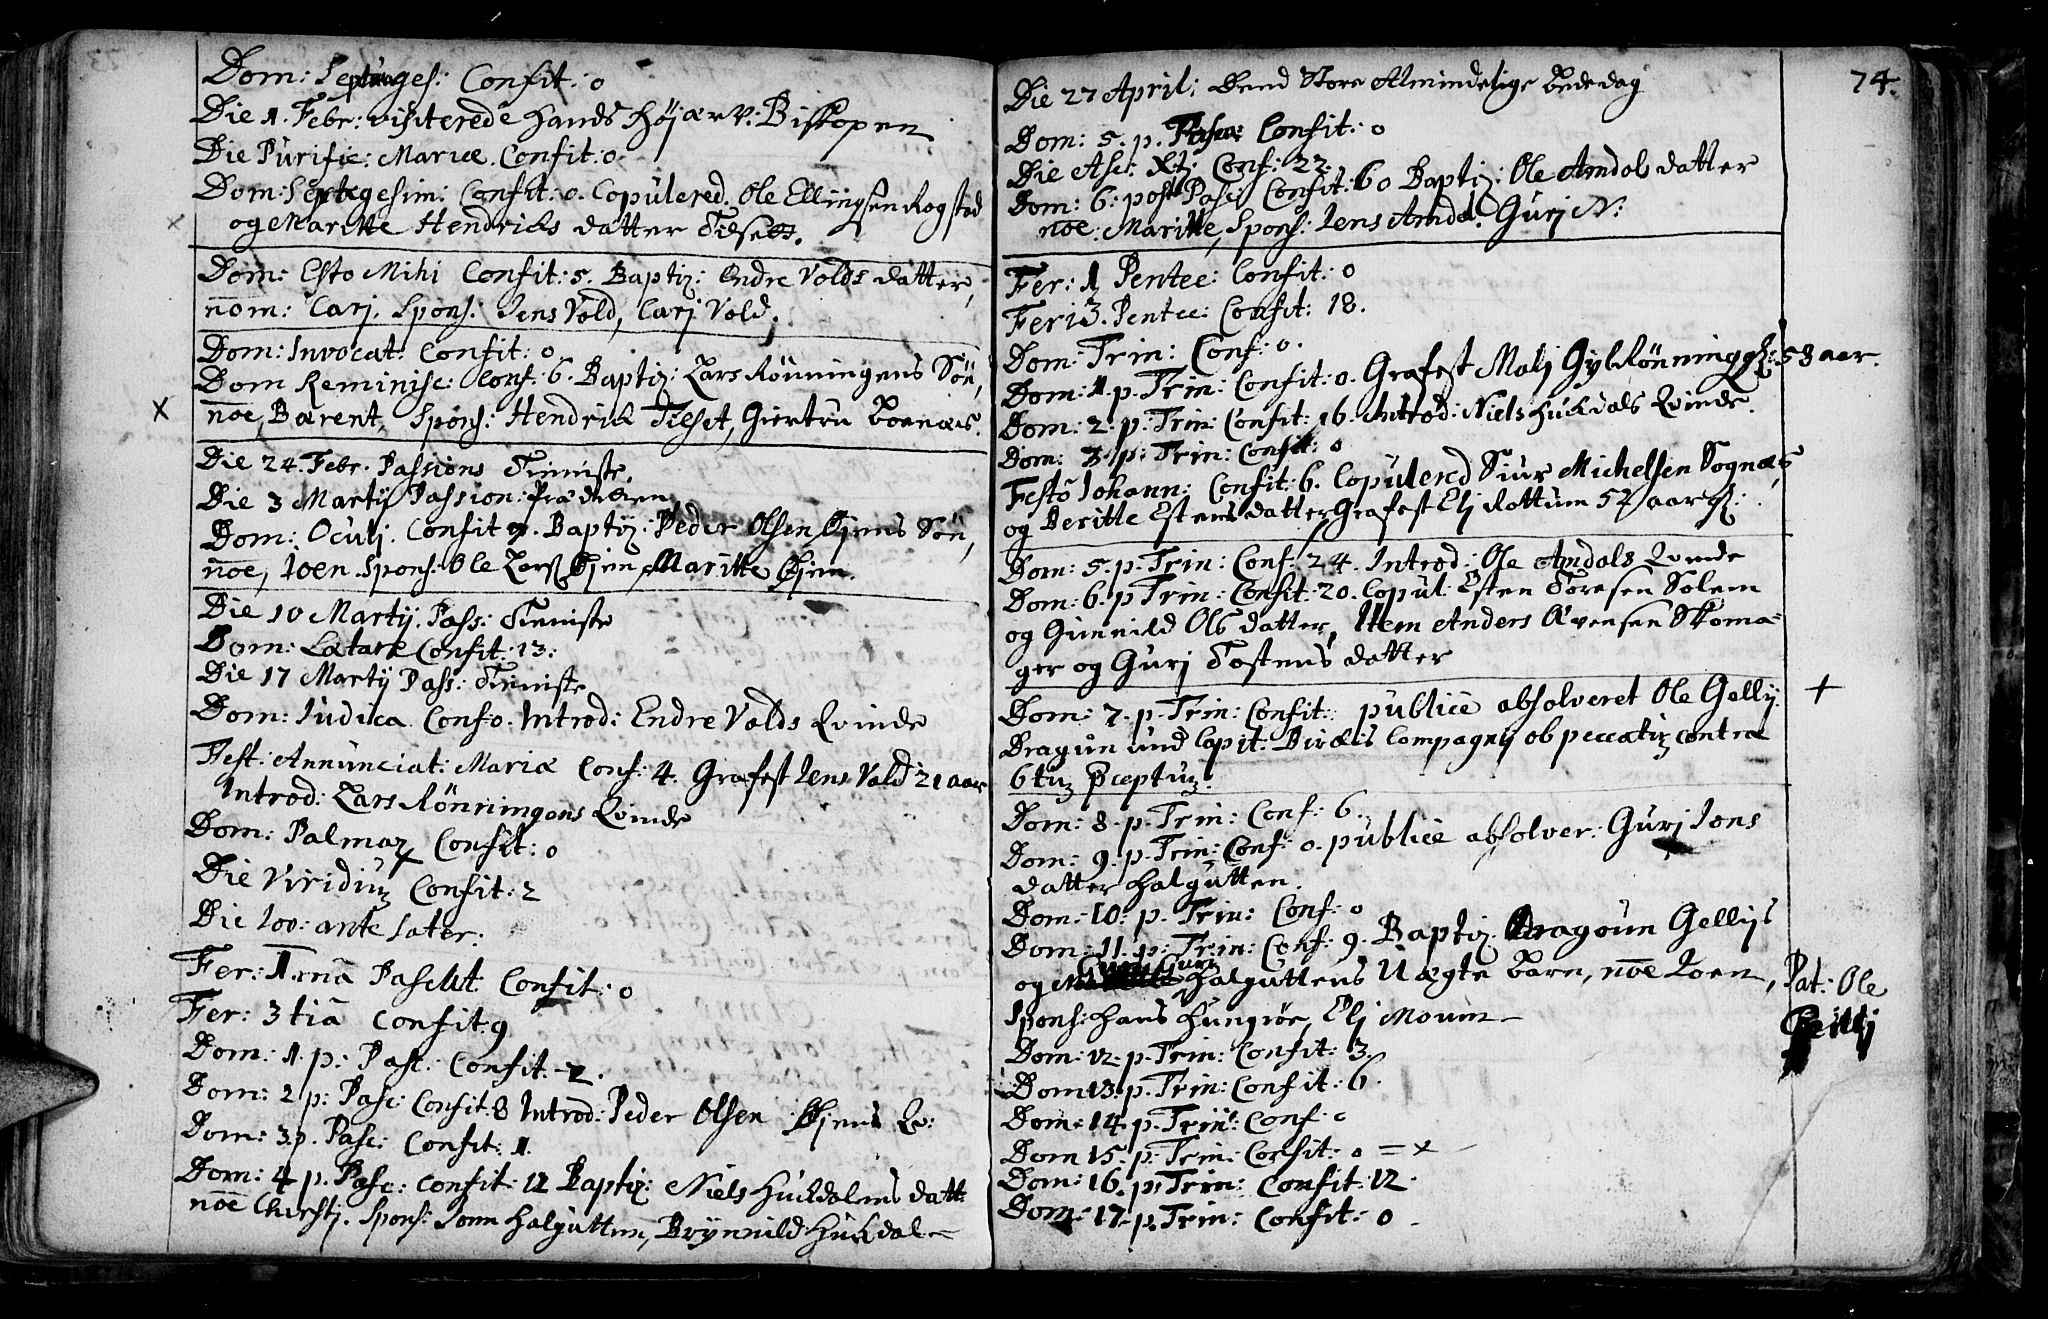 Dom: Septuages: Confit: 0
Die 1. Febr: visiterede Hands Højærv: Biskopen
Die Purific: Mariæ. Confit: 0.
Dom: Sexagesim: Confit: 0. Copulered. Ole Ellingsen Rogstad
og Maritte Hendrichs datter Tilsett.
Dom: Esto Mihi Confit: 5. Baptiz: Endre Volds datter,
nom: Carj. Spons: Jens Vold, Carj Vold.
Dom: Invocat: Confit: 0
Dom Reminisc: Conf: 6. Baptiz: Lars Rönningens Sön,
x noe, Bærent, Spons: Hendrich Tilset, Giertru
Die 24. Febr. Passions Tieniste,
Die 3 Martij Passion: Prædichen
Dom: Oculj. Confit 9. Baptiz: Peder Olsen Øjens Sön,
noe, Joen. Spons: Ole Lars: Øjen, Maritte Øjen.
Die 10 Martij. Pass: Tieniste
Dom: Lætare Confit: 13:
Die 17 Martij Pass: Tieniste
Dom: Judica Conf: 0. Introd: Endre Volds Qvinde
Fest: Annunciat: Mariæ Conf: 4. Grafest Jens Vold 21 aar
Introd: Lars Rönningens Qvinde
Dom: Palmaz Confit: 0
Die Viridiuz Confit: 2
Die ante
Fer: 1.mâ Paschat Confit: 0
Fer: 3 tiâ Confit: 9
Dom: 1. p: Pasc: Confit. 2.
Dom: 2 p: Pasc: Confit. 8 Introd: Peder Olsen Øjens Qv:
Dom: 3. p. Pasc: Confit: 1.
Dom: 4 p. Pasc: Confit: 12 Baptiz: Niels Huchdalens datt:
noe Cherstj. Spons: Jonn Halgutten, Brynnild Huchdal
74.
Die 27 April: Dend Store Almindelige Bededag
Dom: 5. p. Pasc: Confit: 0
Die Asc: Xtj Conf: 22.
Dom: 6: post Pasc: Confit: 60 Baptiz: Ole Amdals datter
noe: Maritte, Spons: Jens Amdal. Gurj N:
Fer: 1 Pentec: Confit: 0
Feri 3. Pentec: Confit: 18.
Dom: Trin: Conf: 0.
Dom: 1. p. Trin: Confit: 0. Grafest Malj Gylrönning gl: 58 aar.
Dom: 2. p. Trin: Confit: 16. Introd: Niels Huchdals Qvinde.
Dom: 3. p: Trin: Confit: 0
Festo Johann: Confit: 6. Copulered Siur Michelsen Sognæs
og Beritte Estensdatter, Grafest Elj Rottum 57 aar gl:
Dom: 5. p. Trin: Conf: 24. Introd: Ole Amdals Qvinde
Dom: 6. p Trin: Confit: 20. Copul: Esten Toresen Solem
og Gunnild Ols datter, Item Anders Øvensen Skoma-
ger og Gurj Tostens datter
Dom: 7. p. Trin: Confit: publicè absolveret Ole Gellij +
Dragun und Capit: Compagnij ob peccatuz contra
6tuz Pceptuz.
Dom: 8. p. Trin: Conf: 6.
Dom: 9. p. Trin: Conf: 0. publicè absolver: Gurj Jons
datter Halgutten.
Dom: 10: p. Trin: Conf: 0
Dom: 11. p: Trin: Conf: 9. Baptiz. Dragoun Gellijs
og Gurj Halguttens Uægte barn, noe Joen, Pat: Ole
Spons: Hans Hungröe, Elj Mouin Geillj
Dom: 12. p. Trin: Confit: 3.
Dom 13. p. Trin: Confit: 6.
Dom: 14. p. Trin: Conf: 0
Dom 15. p: Trin: Confit: 0 = x
Dom: 16. p: Trin: Confit: 12.
Dom: 17. p. Trin: Confit: 0